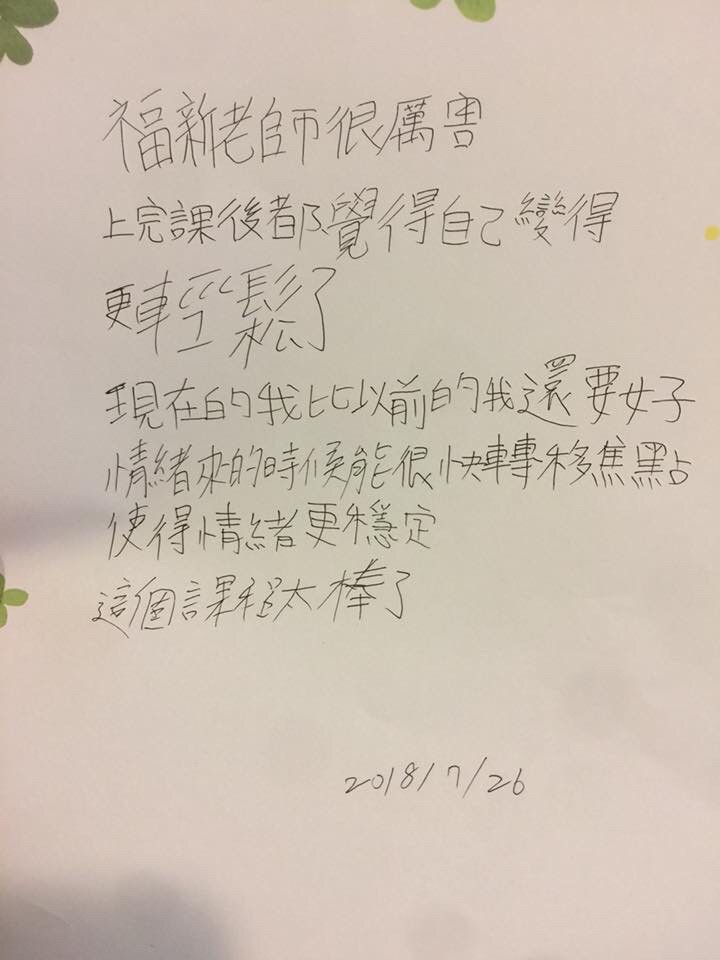 福新老師很厲害
上完課後都覺得自己變得
更輕鬆了
現在的我比以前的我還要好
情緒來的時候能很快轉移焦點
使得情緒更穩定
這個課程太棒了
2018/7/26